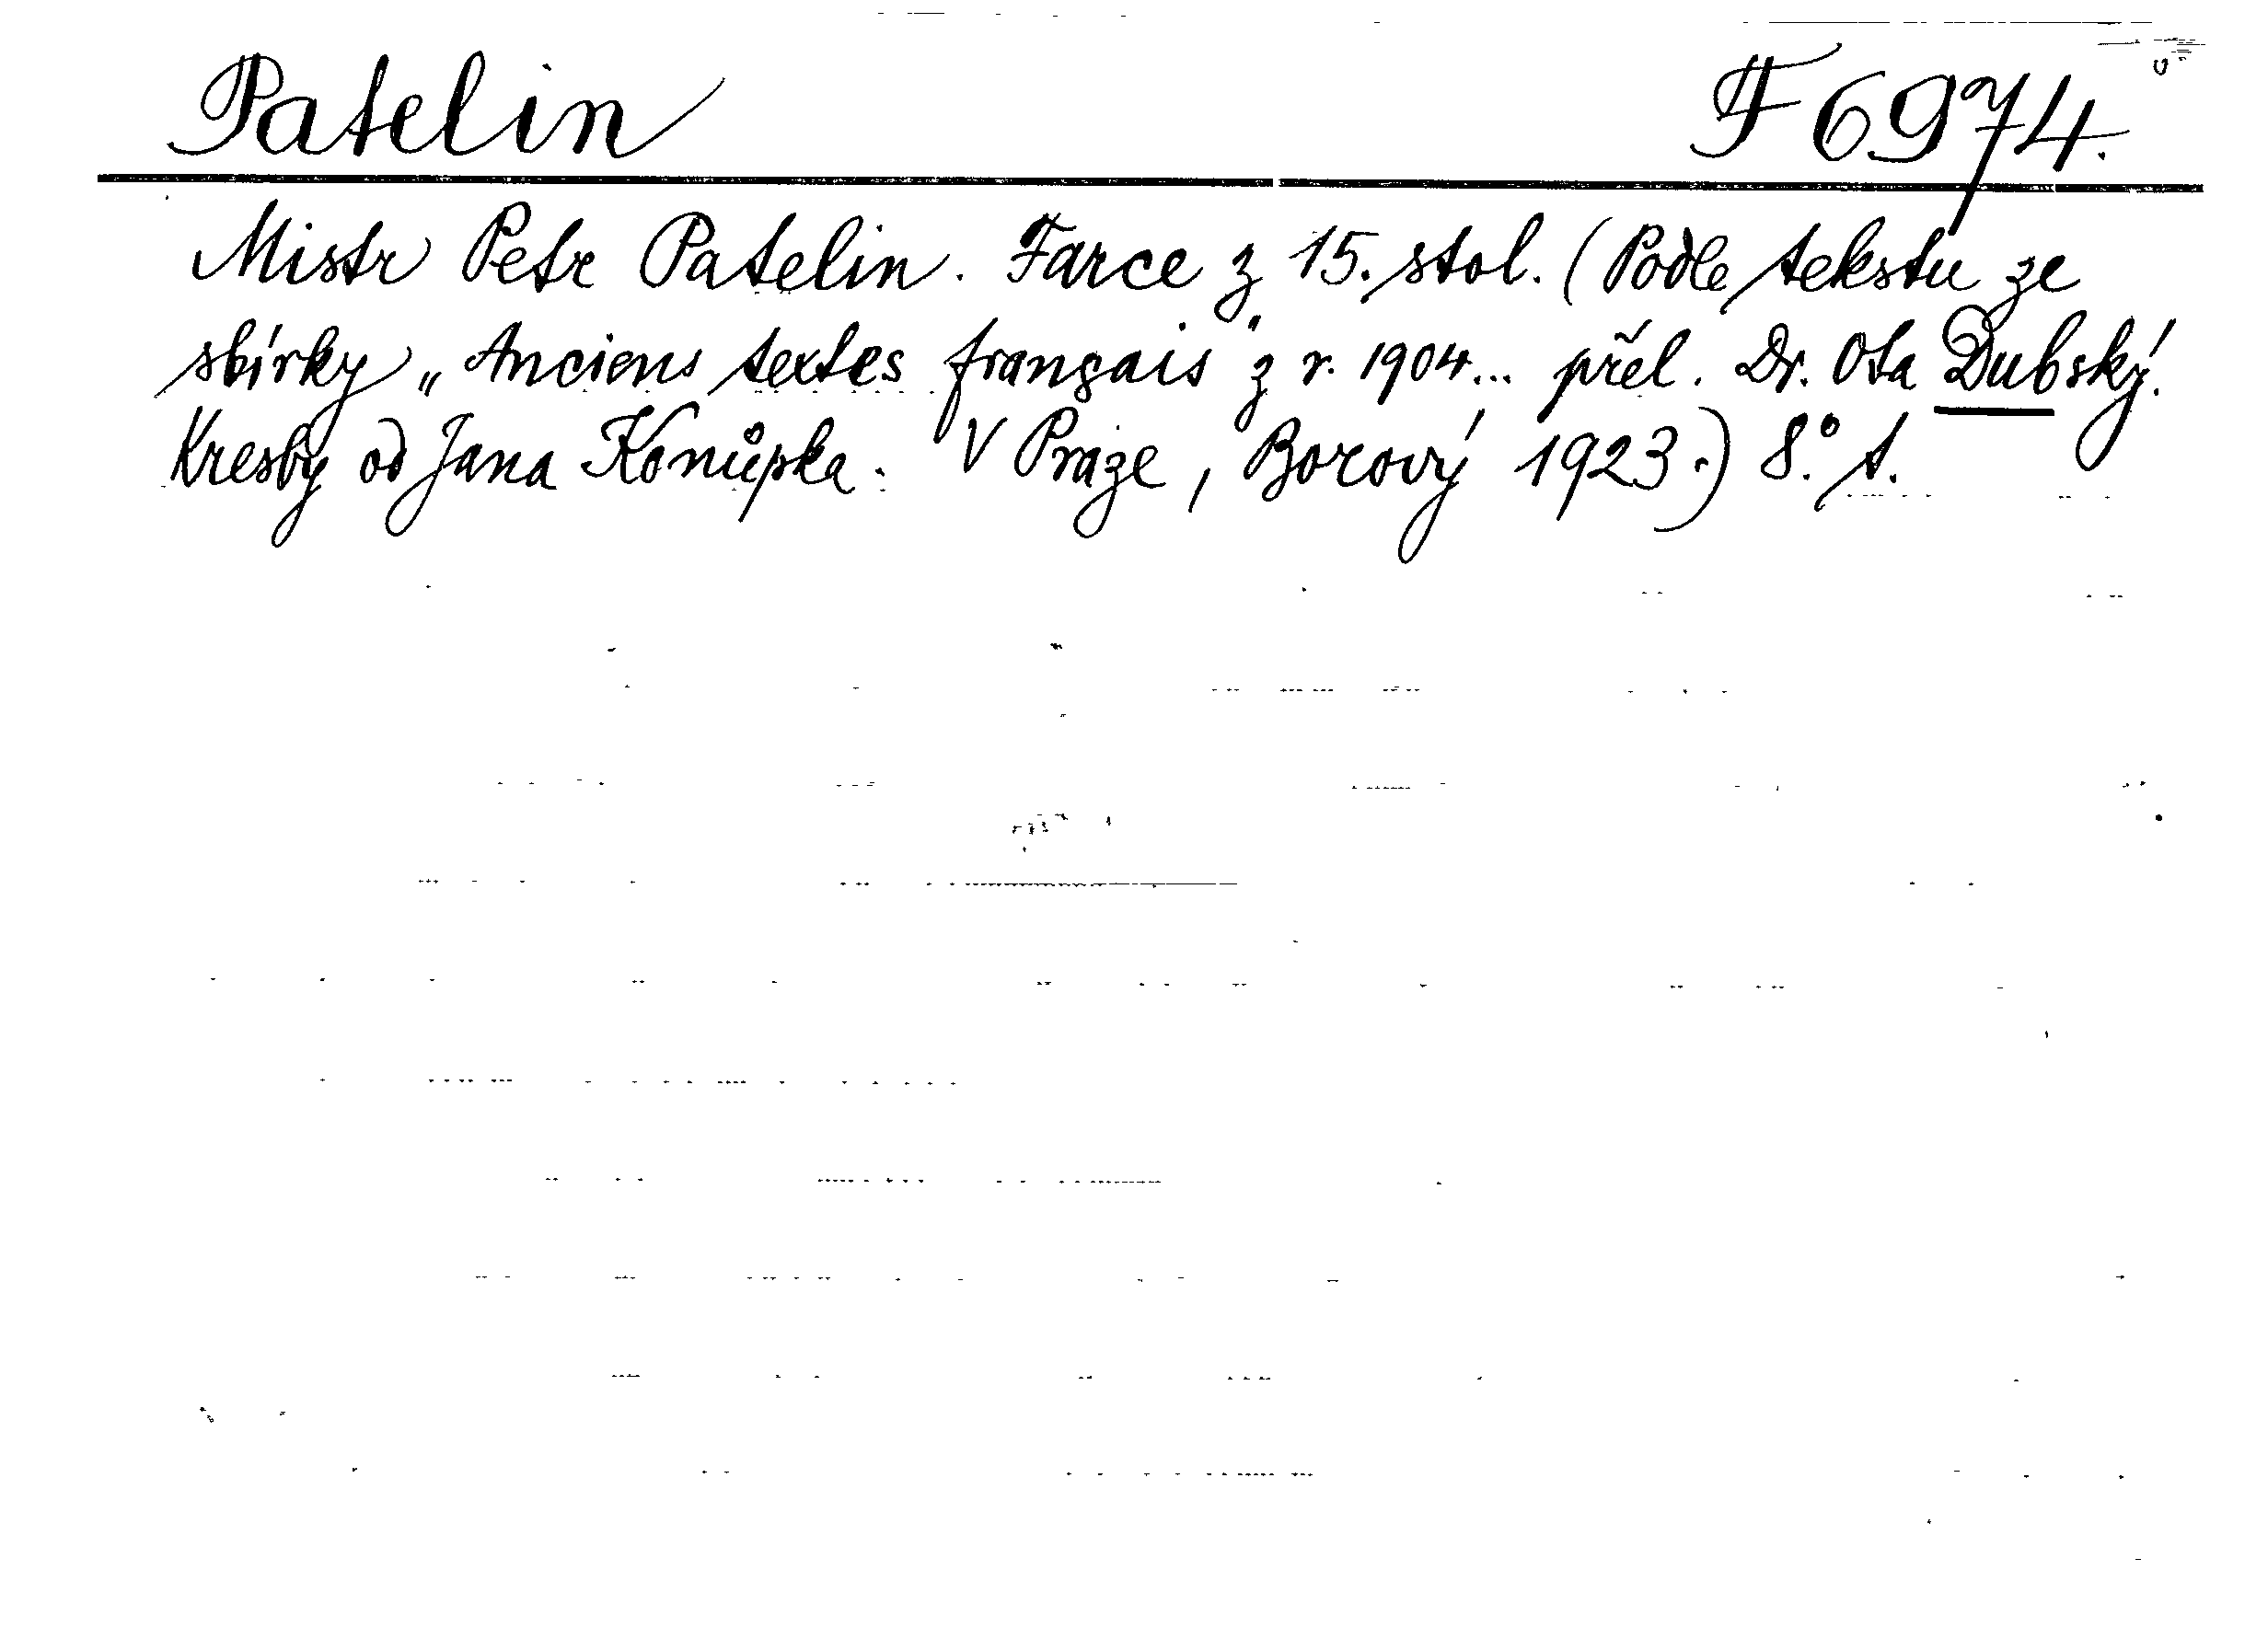 Patelin F 6974.
Mistr Petr Patelin. Farce z 15. stol. (Podle tekstu ze
sbírky „Anciens textes français" z r. 1904... přel. Dr. Ota Dubský.
Kresby od Jana Konůpka. V Praze, Borový 1923.) 8.° s.